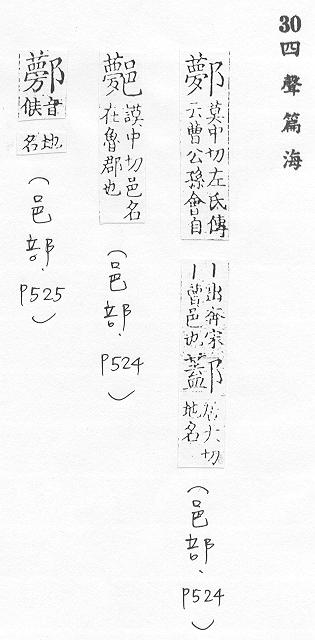 30四聲篇海
鄸
莫中切左氏傳
云曹公孫會自
丨出奔宋
丨曹邑也
居大切
地名
(邑部、P524)
謨中切邑名
在魯郡也
(邑部、P524)
音
地
名
(邑部、P525)